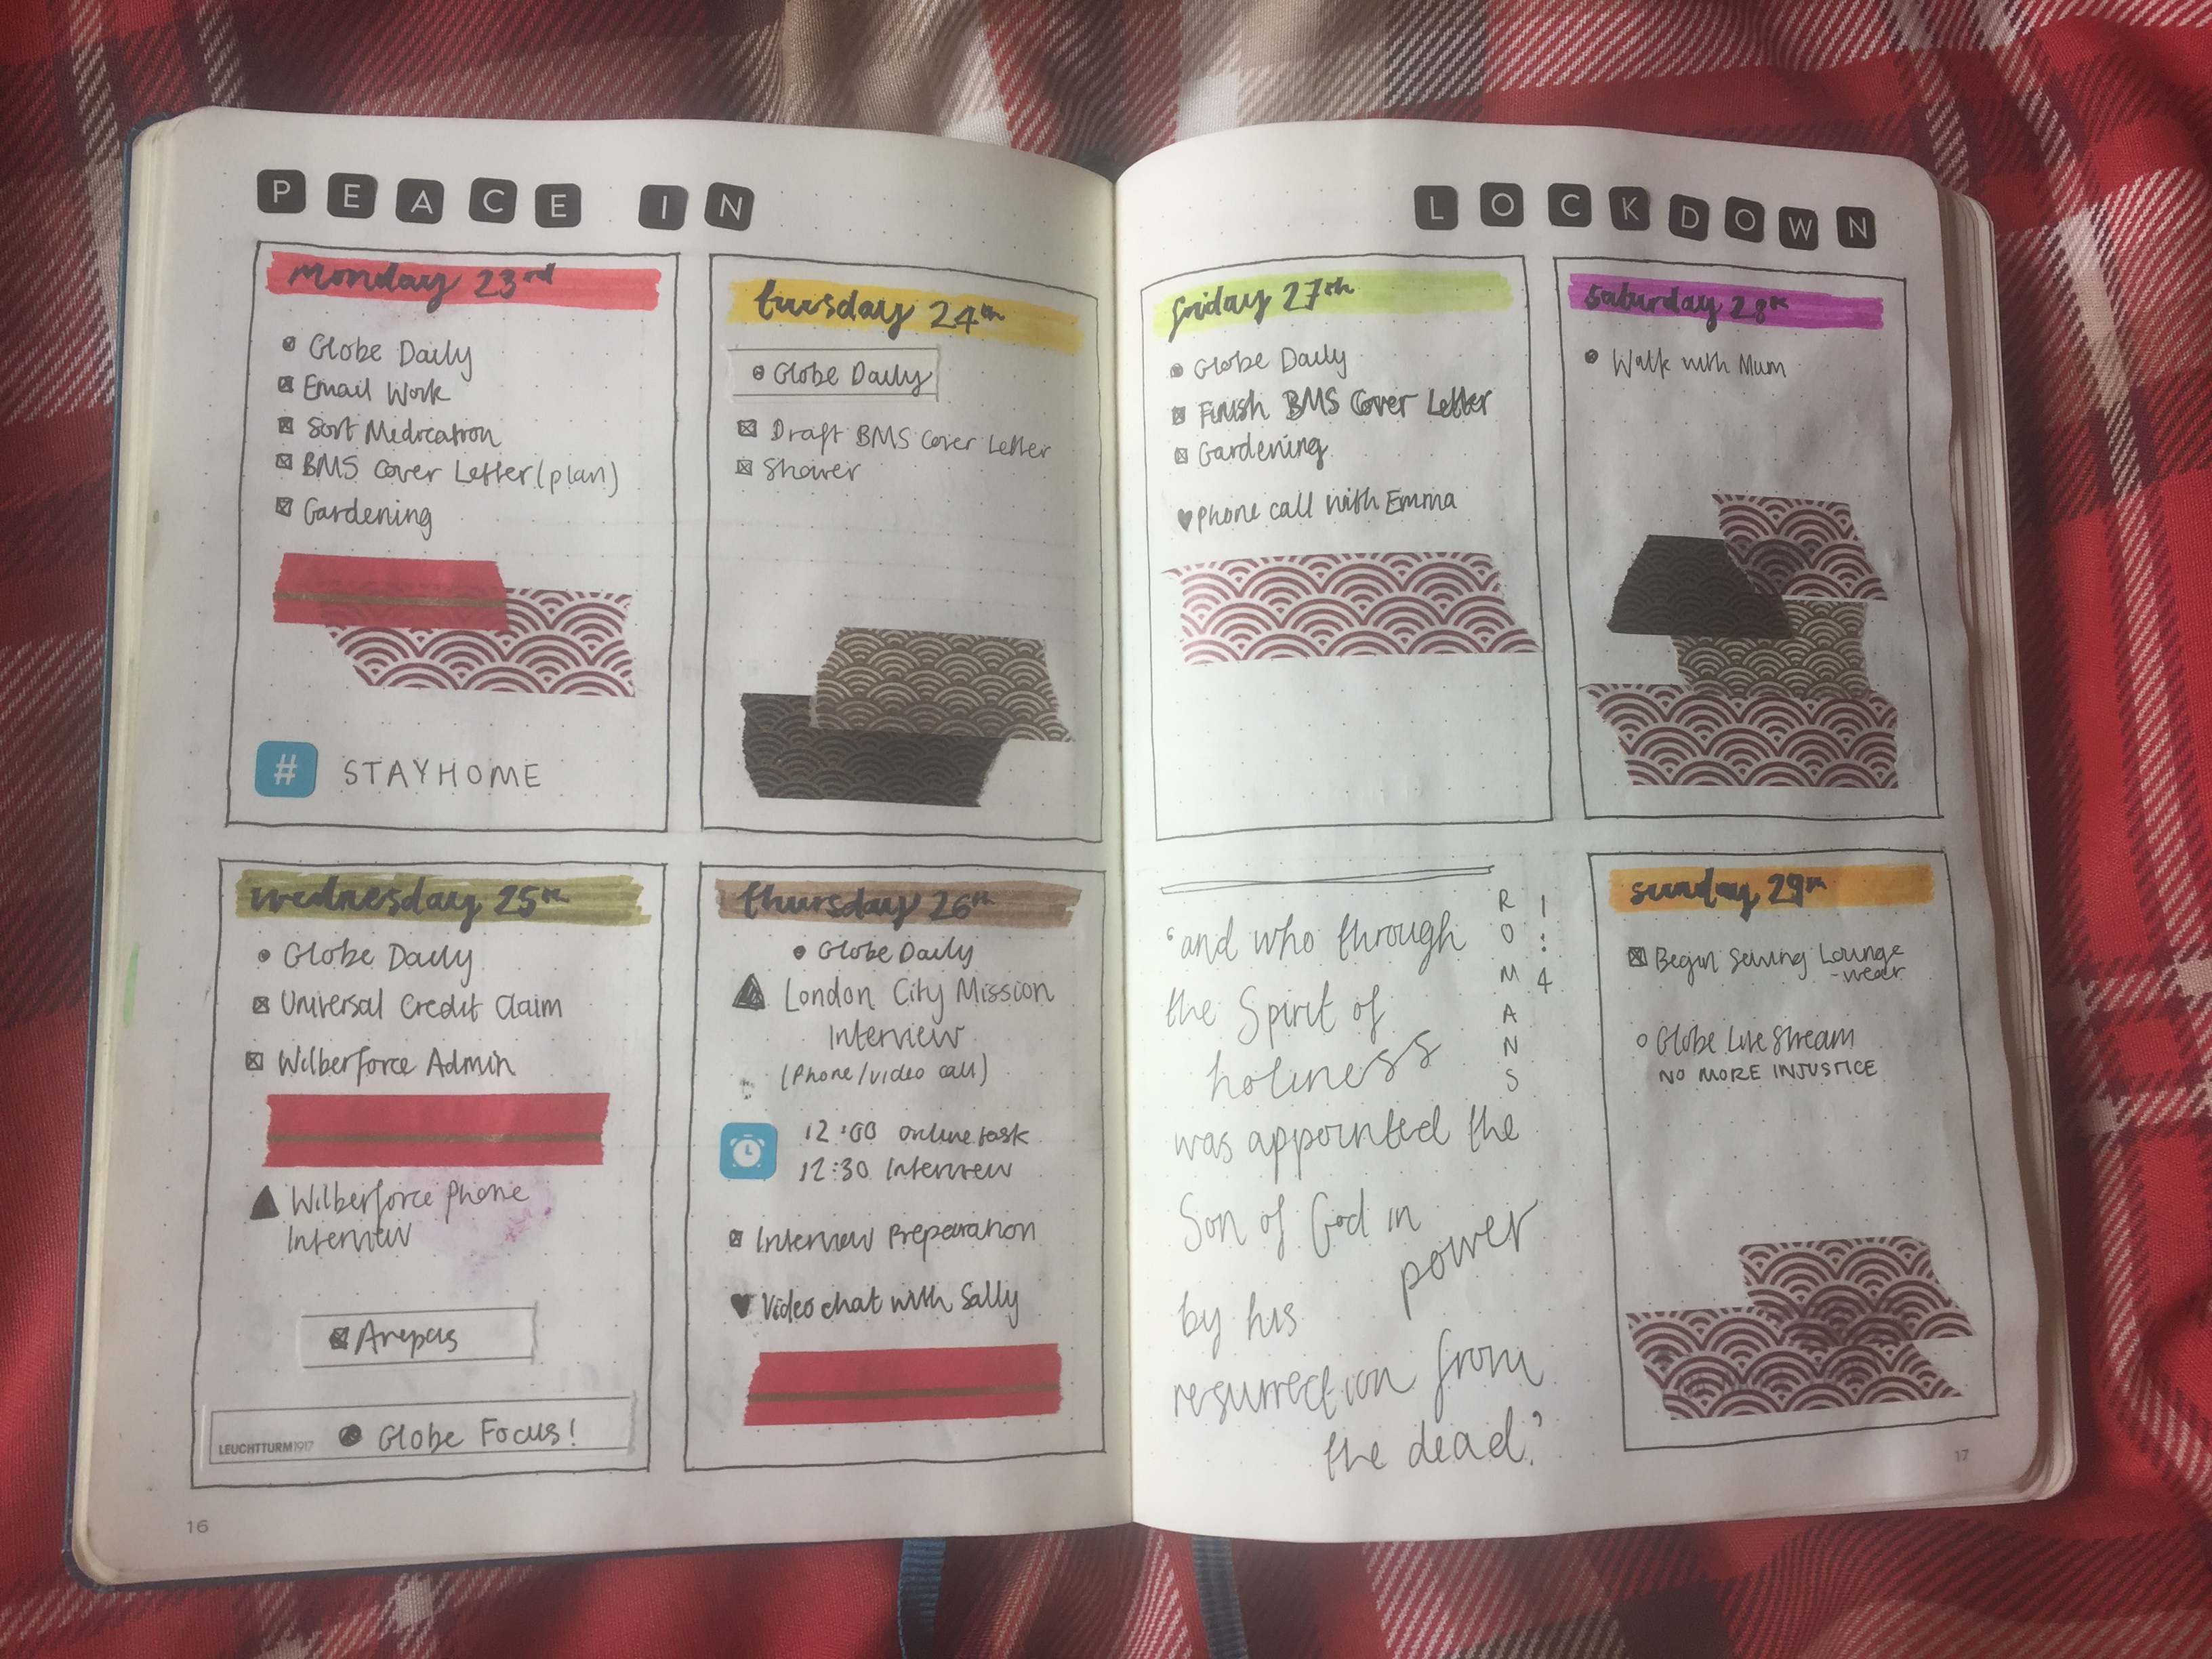 PEACE IN
LOCKDOWN
monday 23rd
Globe Daily
Email Work
Sort Medication
BMS Cover Letter (plan)
Gardening
# STAYHOME
tuesday 24th
Globe Daily
Draft BMS Cover Letter
Shower
wednesday 25th
Globe Daily
Universal Credit Claim
Wilberforce Admin
Wilberforce Phone
Interview
Arepas
LEUCHTTURM1917
Globe Focus!
16
thursday 26th
Globe Daily
London City Mission
Interview
(Phone/video call)
12:00 online task
12:30 Interview
Interview Preparation
♥ Video chat with Sally
friday 27th
Globe Daily
Finish BMS Cover Letter
Gardening
♥ Phone call with Emma
saturday 28th
Walk with Mum
'and who through
the Spirit of
holiness
was appointed the
Son of God in
power
by his
resurrection from
the dead.'
ROMANS
1:4
sunday 29th
Begin Sewing Lounge
-wear
Globe Live Stream
NO MORE INJUSTICE
17